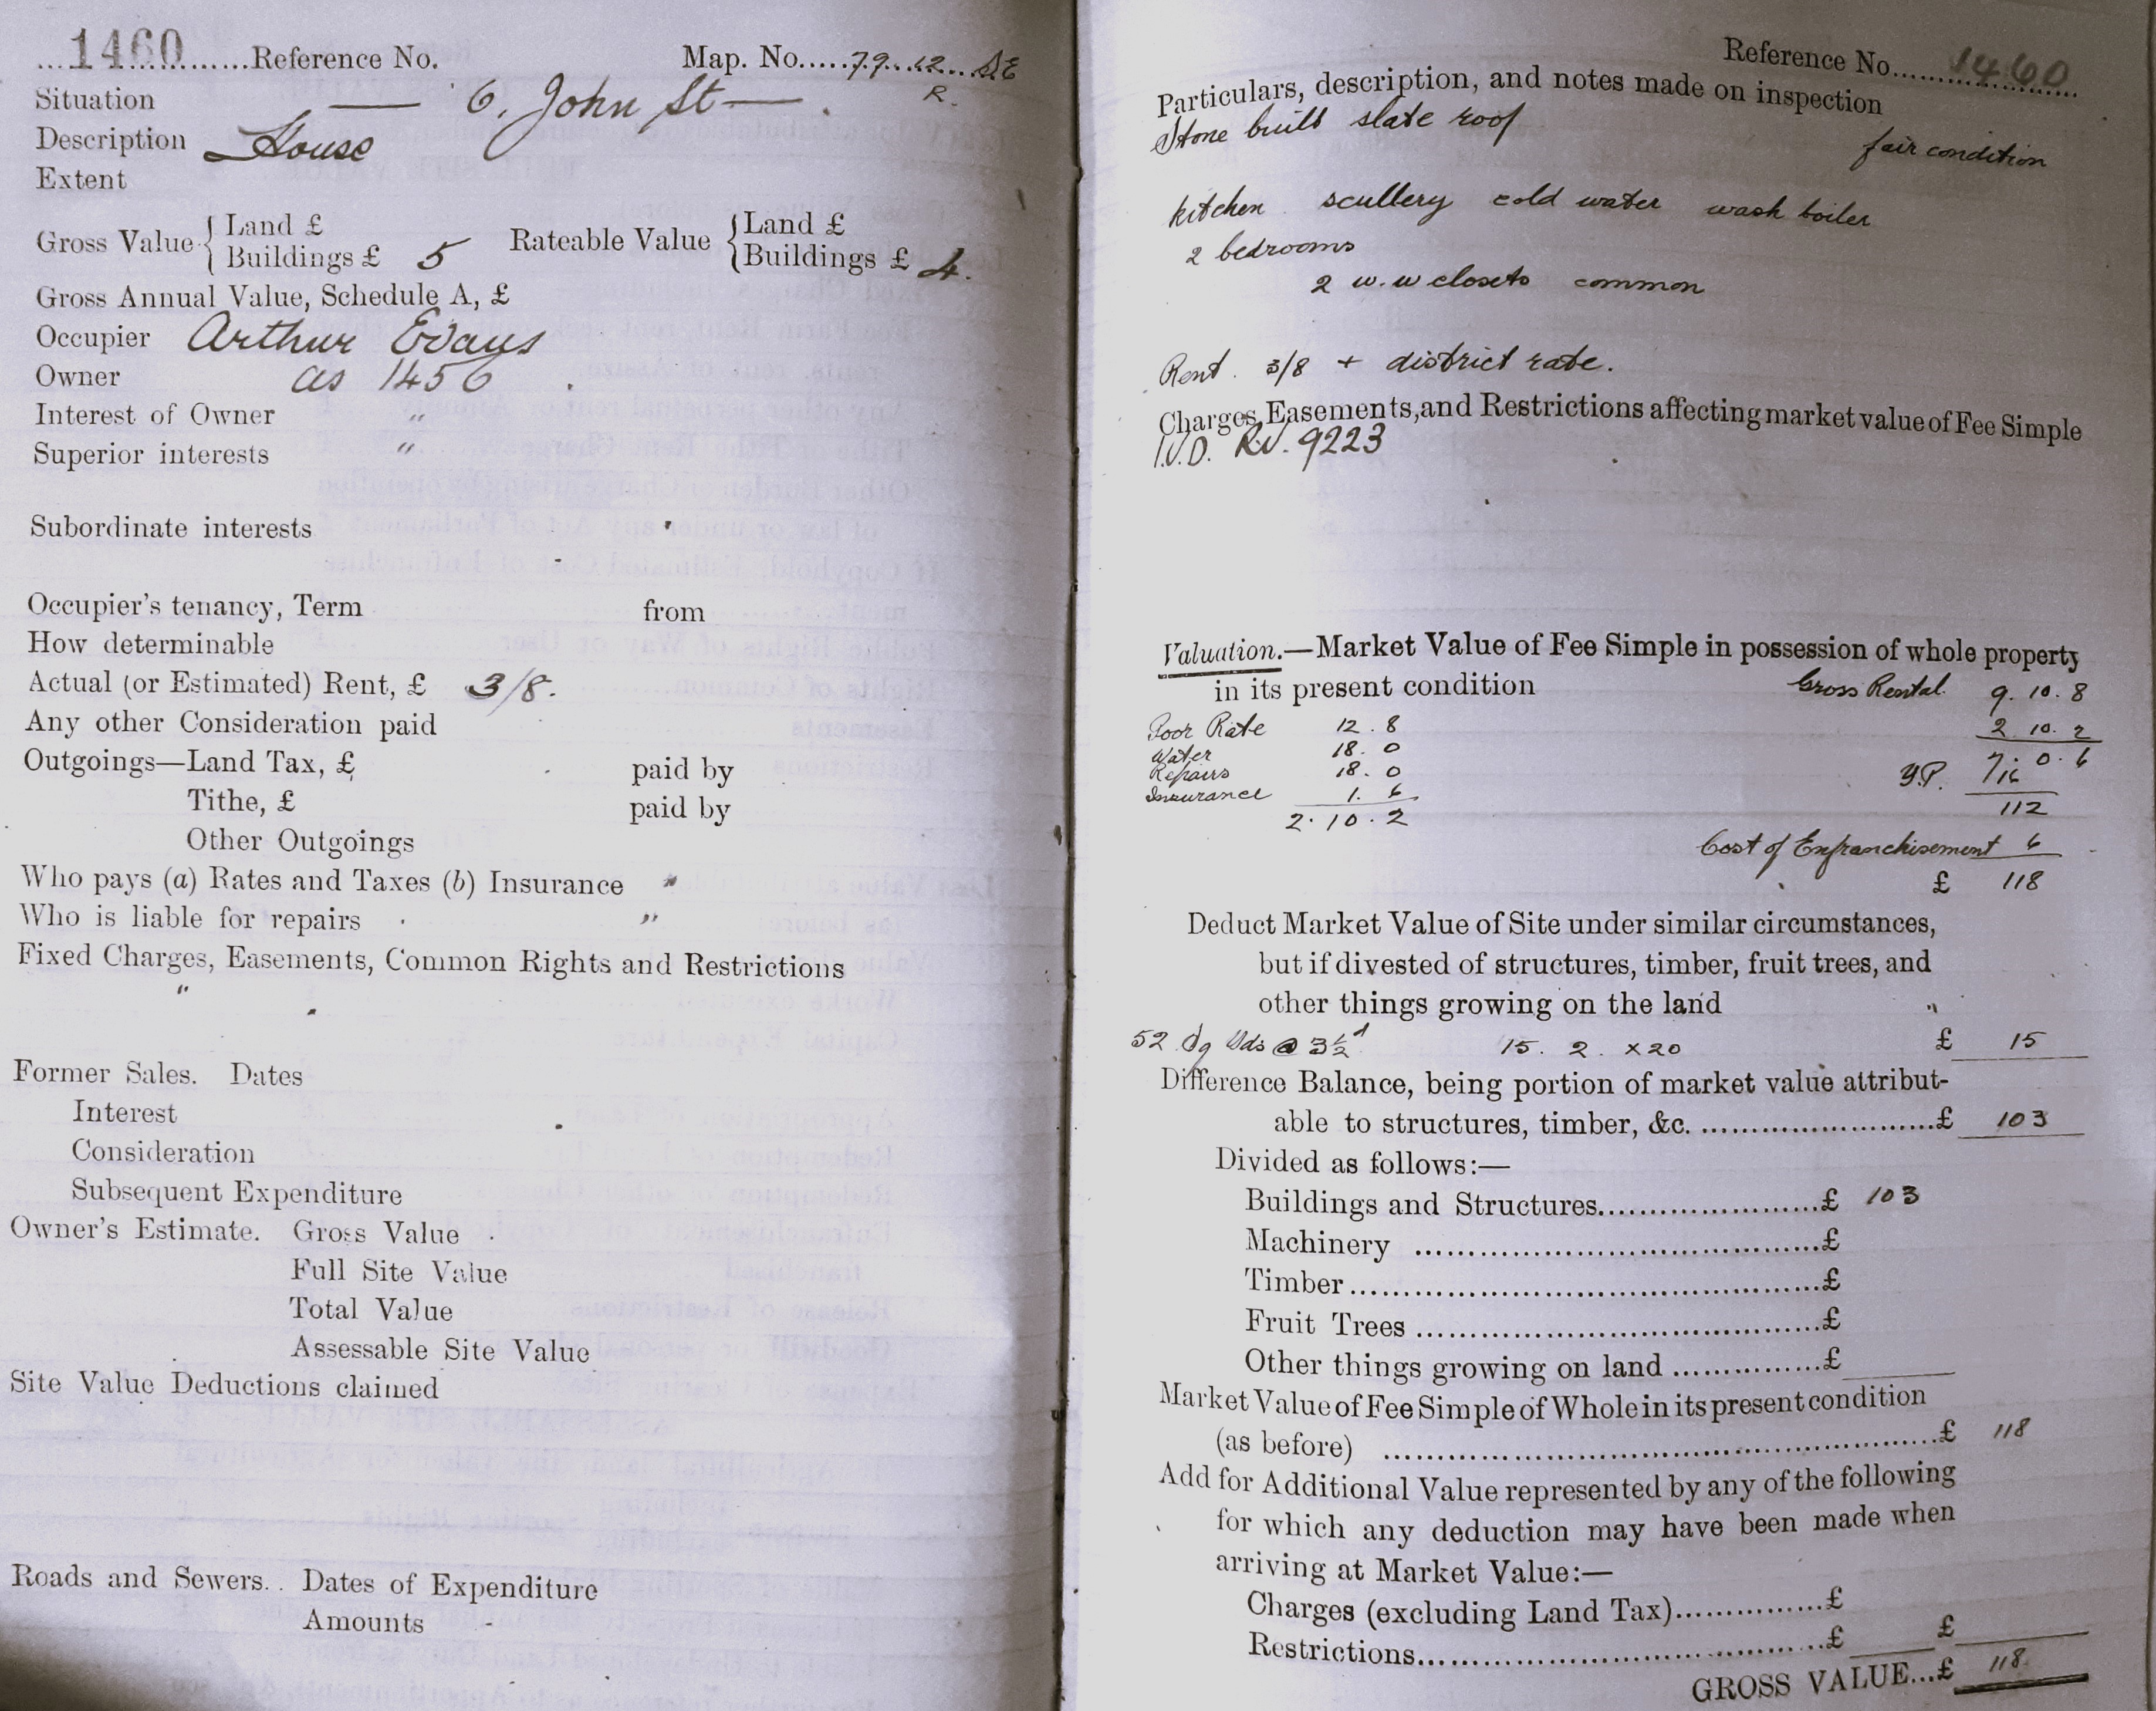 1460 Reference No. Map. No. 79. 12. SE
R.
Situation — 6, John St — .
Description House
Extent
Gross Value { Land £ Rateable Value { Land £
Buildings £ 5 Buildings £ 4.
Gross Annual Value, Schedule A, £
Occupier Arthur Evans
Owner as 1456
Interest of Owner "
Superior interests "
Subordinate interests
Occupier's tenancy, Term from
How determinable
Actual (or Estimated) Rent, £ 3/8.
Any other Consideration paid
Outgoings—Land Tax, £ paid by
Tithe, £ paid by
Other Outgoings
Who pays (a) Rates and Taxes (b) Insurance "
Who is liable for repairs "
Fixed Charges, Easements, Common Rights and Restrictions
"
Former Sales. Dates
Interest
Consideration
Subsequent Expenditure
Owner's Estimate. Gross Value
Full Site Value
Total Value
Assessable Site Value
Site Value Deductions claimed
Roads and Sewers. Dates of Expenditure
Amounts
Reference No. 1460
Particulars, description, and notes made on inspection
Stone built slate roof
fair condition
kitchen scullery cold water wash boiler
2 bedrooms
2 w.w closets common
Rent. 3/8 + district rate.
Charges, Easements, and Restrictions affecting market value of Fee Simple
I.V.D. RV. 9223
Valuation.—Market Value of Fee Simple in possession of whole property
in its present condition Gross Rental. 9. 10. 8
Poor Rate 12. 8 2. 10. 2
Water 18. 0 7. 0. 6
Repairs 18. 0 Y.P. 16
Insurance 1. 6 112
2. 10. 2
Cost of Enfranchisement 6
£ 118
Deduct Market Value of Site under similar circumstances,
but if divested of structures, timber, fruit trees, and
other things growing on the land "
52 Sq Yds @ 3½d 15. 2. x20 £ 15
Difference Balance, being portion of market value attribut-
able to structures, timber, &c. £ 103
Divided as follows:—
Buildings and Structures £ 103
Machinery £
Timber £
Fruit Trees £
Other things growing on land £
Market Value of Fee Simple of Whole in its present condition
(as before) £ 118
Add for Additional Value represented by any of the following
for which any deduction may have been made when
arriving at Market Value:—
Charges (excluding Land Tax) £
Restrictions £ £
GROSS VALUE...£ 118